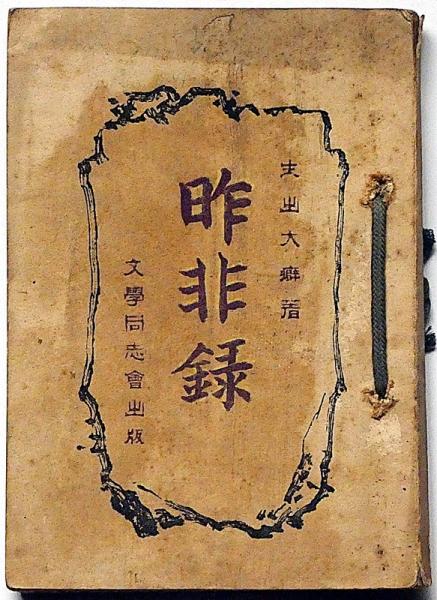 生出大癖著
昨非録
文學同志會出版